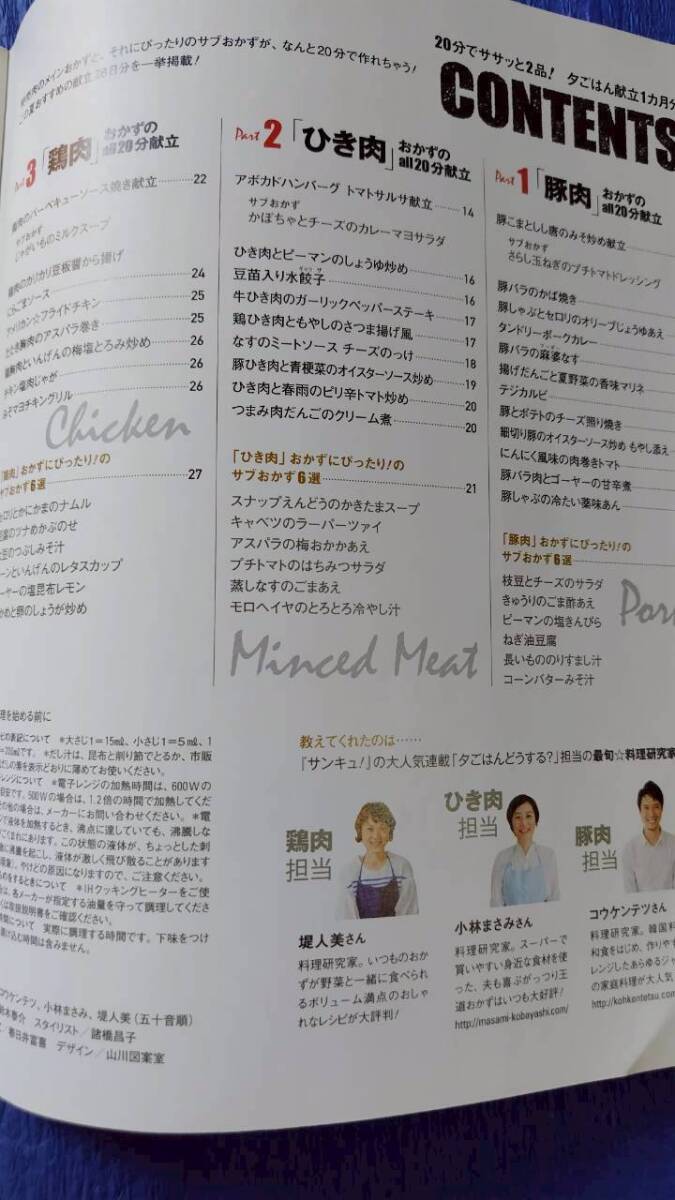 20分でササッと2品! 夕ごはん献立1カ月分
CONTENTS
のメインおかずと、それにぴったりのサブおかずが、なんと20分で作れちゃう!
この夏おすすめの献立28日分を一挙掲載!
Part 1 「豚肉」おかずの
all20分献立
豚こまとしし唐のみそ炒め献立
サブおかず
さらし玉ねぎのプチトマトドレッシング
豚バラのかば焼き
豚しゃぶとセロリのオリーブじょうゆあえ
タンドリーポークカレー
豚バラの麻婆なす
揚げだんごと夏野菜の香味マリネ
テジカルビ
豚とポテトのチーズ照り焼き
細切り豚のオイスターソース炒め もやし添え
にんにく風味の肉巻きトマト
豚バラ肉とゴーヤーの甘辛煮
豚しゃぶの冷たい薬味あん
「豚肉」おかずにぴったり!の
サブおかず6選
枝豆とチーズのサラダ
きゅうりのごま酢あえ
ピーマンの塩きんぴら
ねぎ油豆腐
長いもののりすまし汁
コーンバターみそ汁
Por
Part 2 「ひき肉」おかずの
all20分献立
アボカドハンバーグ トマトサルサ献立 14
サブおかず
かぼちゃとチーズのカレーマヨサラダ
ひき肉とピーマンのしょうゆ炒め 16
豆苗入り水餃子 16
牛ひき肉のガーリックペッパーステーキ 17
鶏ひき肉ともやしのさつま揚げ風 17
なすのミートソース チーズのっけ 18
豚ひき肉と青梗菜のオイスターソース炒め 19
ひき肉と春雨のピリ辛トマト炒め 20
つまみ肉だんごのクリーム煮 20
「ひき肉」おかずにぴったり!の
サブおかず6選 21
スナップえんどうのかきたまスープ
キャベツのラーパーツァイ
アスパラの梅おかかあえ
プチトマトのはちみつサラダ
蒸しなすのごまあえ
モロヘイヤのとろとろ冷やし汁
Minced Meat
Part 3 「鶏肉」おかずの
all20分献立
鶏肉のバーベキューソース焼き献立 22
サブおかず
じゃがいものミルクスープ
鶏肉のカリカリ豆板醤から揚げ
にらごまソース 24
アメリカン☆フライドチキン 25
たたき胸肉のアスパラ巻き 25
鶏胸肉といんげんの梅塩とろみ炒め 26
チキン塩肉じゃが 26
みそマヨチキングリル 26
Chicken
「鶏肉」おかずにぴったり!の
サブおかず6選 27
セロリとかにかまのナムル
豆腐のツナめかぶのせ
大豆のつぶしみそ汁
コーンといんげんのレタスカップ
ゴーヤーの塩昆布レモン
わかめと卵のしょうが炒め
理を始める前に
ピの表記について *大さじ1=15mℓ、小さじ1=5mℓ、1
=200mℓです。*だし汁は、昆布と削り節でとるか、市販
だしの素を表示どおりに薄めてお使いください。
レンジについて *電子レンジの加熱時間は、600Wの
目安です。500Wの場合は、1.2倍の時間で加熱してくだ
その他の場合は、メーカーにお問い合わせください。*電
ジで液体を加熱するとき、沸点に達していても、沸騰しな
こくまれにあります。この状態の液体が、ちょっとした刺
急に沸騰を起こし、液体が激しく飛び散ることがあります
現象)。やけどの原因になりますので、ご注意ください。
ものをするときについて *IHクッキングヒーターをご使
合は、各メーカーが指定する油量を守って調理してくださ
くは取扱説明書をご確認ください。
時間について 実際に調理する時間です。下味をつけ
漬け込む時間は含みません。
コウケンテツ、小林まさみ、堤人美(五十音順)
鈴木泰介 スタイリスト/諸橋昌子
春日井富喜 デザイン/山川図案室
教えてくれたのは……
『サンキュ!』の大人気連載「夕ごはんどうする?」担当の最旬☆料理研究家
鶏肉
担当
堤人美さん
料理研究家。いつものおか
ずが野菜と一緒に食べられ
るボリューム満点のおしゃ
れなレシピが大評判!
ひき肉
担当
小林まさみさん
料理研究家。スーパーで
買いやすい身近な食材を使
った、夫も喜ぶがっつり王
道おかずはいつも大好評!
http://masami-kobayashi.com/
豚肉
担当
コウケンテツさん
料理研究家。韓国料
和食をはじめ、作りやす
レンジしたあらゆるジャ
の家庭料理が大人気
http://kohkentetsu.com